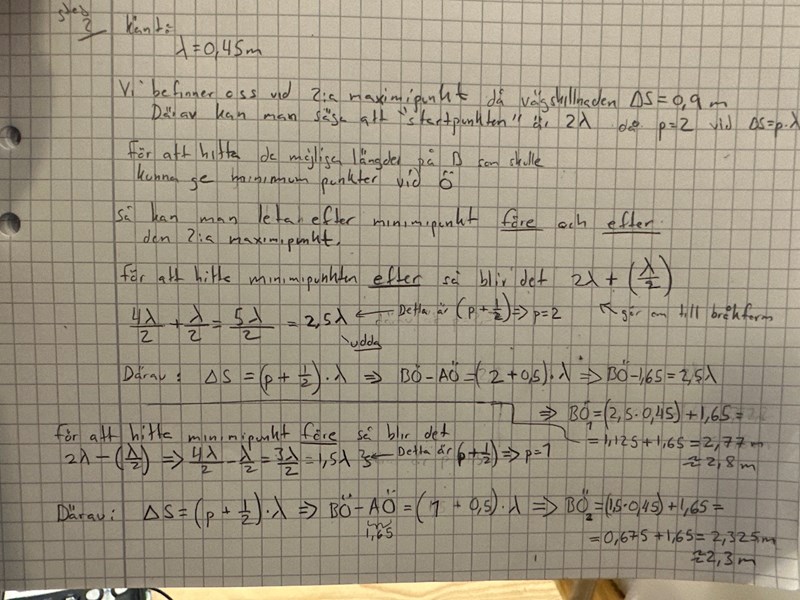 steg 2
Känt:
λ = 0,45 m
Vi befinner oss vid 2:a maximipunkt då vägskillnaden ΔS = 0,9 m
Därav kan man säga att "startpunkten" är 2λ då p=2 vid ΔS=p·λ
för att hitta de möjliga längder på B som skulle
kunna ge minimum punkter vid Ö
så kan man leta efter minimipunkt före och efter
den 2:a maximipunkt.
för att hitta minimipunkten efter så blir det 2λ + (λ/2)
4λ/2 + λ/2 = 5λ/2 = 2,5λ ← Detta är (p + 1/2) ⇒ p=2 ↖ gör om till bråkform
udda
Därav: ΔS = (p + 1/2)·λ ⇒ BÖ - AÖ = (2 + 0,5)·λ ⇒ BÖ - 1,65 = 2,5λ
⇒ BÖ₁ = (2,5·0,45) + 1,65 =
= 1,125 + 1,65 = 2,77 m
≈ 2,8 m
för att hitta minimipunkt före så blir det
2λ - (λ/2) ⇒ 4λ/2 - λ/2 = 3λ/2 = 1,5λ ← Detta är (p + 1/2) ⇒ p=1
Därav: ΔS = (p + 1/2)·λ ⇒ BÖ - AÖ = (1 + 0,5)·λ ⇒ BÖ₂ = (1,5·0,45) + 1,65 =
1,65
= 0,675 + 1,65 = 2,325 m
≈ 2,3 m